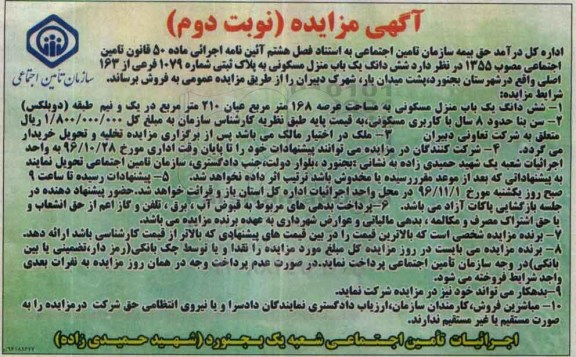 آگهی مزایده (نوبت دوم)
سازمان تأمین اجتماعی
اداره کل درآمد حق بیمه سازمان تامین اجتماعی به استناد فصل هشتم آئین نامه اجرائی ماده ۵۰ قانون تامین
اجتماعی مصوب ۱۳۵۵ در نظر دارد شش دانگ یک باب منزل مسکونی به پلاک ثبتی شماره ۱۰۷۹ فرعی از ۱۶۳
اصلی واقع در شهرستان بجنورد،پشت میدان بار، شهرک دبیران را از طریق مزایده عمومی به فروش برساند.
شرایط مزایده:
۱- شش دانگ یک باب منزل مسکونی به مساحت عرصه ۱۶۸ متر مربع عیان ۲۱۰ متر مربع در یک و نیم طبقه (دوبلکس)
۲- سن بنا حدود ۸ سال با کاربری مسکونی،به قیمت پایه طبق نظریه کارشناس سازمان به مبلغ کل ۱/۸۰۰/۰۰۰/۰۰۰ ریال
متعلق به شرکت تعاونی دبیران ۳-ملک در اختیار مالک می باشد پس از برگزاری مزایده تخلیه و تحویل خریدار
می گردد. ۴- شرکت کنندگان در مزایده می توانند پیشنهادات خود را تا پایان وقت اداری مورخ ۹۶/۱۰/۲۸ به واحد
اجرائیات شعبه یک شهید حمیدی زاده به نشانی :بجنورد ،بلوار دولت،جنب دادگستری، سازمان تامین اجتماعی تحویل نمایند
به پیشنهاداتی که بعد از موعد مقرررسیده یا مخدوش باشد ترتیب اثر داده نخواهد شد. ۵- پیشنهادات رسیده تا ساعت ۹
صبح روز یکشنبه مورخ ۹۶/۱۱/۱ در محل واحد اجرائیات اداره کل استان باز و قرائت خواهد شد.حضور پیشنهاد دهنده در
جلسه بازگشایی پاکات آزاد می باشد. ۶-پرداخت بدهی های مربوط به قبوض آب ، برق ، تلفن و گاز اعم از حق انشعاب و
یا حق اشتراک مصرف و مکالمه ، بدهی مالیاتی و عوارض شهرداری به عهده برنده مزایده می باشد.
۷- برنده مزایده شخصی است که بالاترین قیمت را در بین قیمت های پیشنهادی که بالاتر از قیمت کارشناسی باشد ارائه دهد.
۸- برنده مزایده می بایست در روز مزایده کل مبلغ مورد مزایده را نقدا و یا توسط چک بانکی(رمز دار،تضمینی یا بین
بانکی)در وجه سازمان تامین اجتماعی پرداخت نماید.در صورت عدم پرداخت وجه در همان روز مزایده به نفرات بعدی
واجد شرایط فروخته می شود.
۹-بدهکار می تواند خود نیز در مزایده شرکت نماید.
۱۰- مباشرین فروش،کارمندان سازمان،ارزیاب دادگستری نمایندگان دادسرا و یا نیروی انتظامی حق شرکت درمزایده را به
صورت مستقیم یا غیر مستقیم ندارند.
اجرائیات تأمین اجتماعی شعبه یک بجنورد (شهید حمیدی زاده)